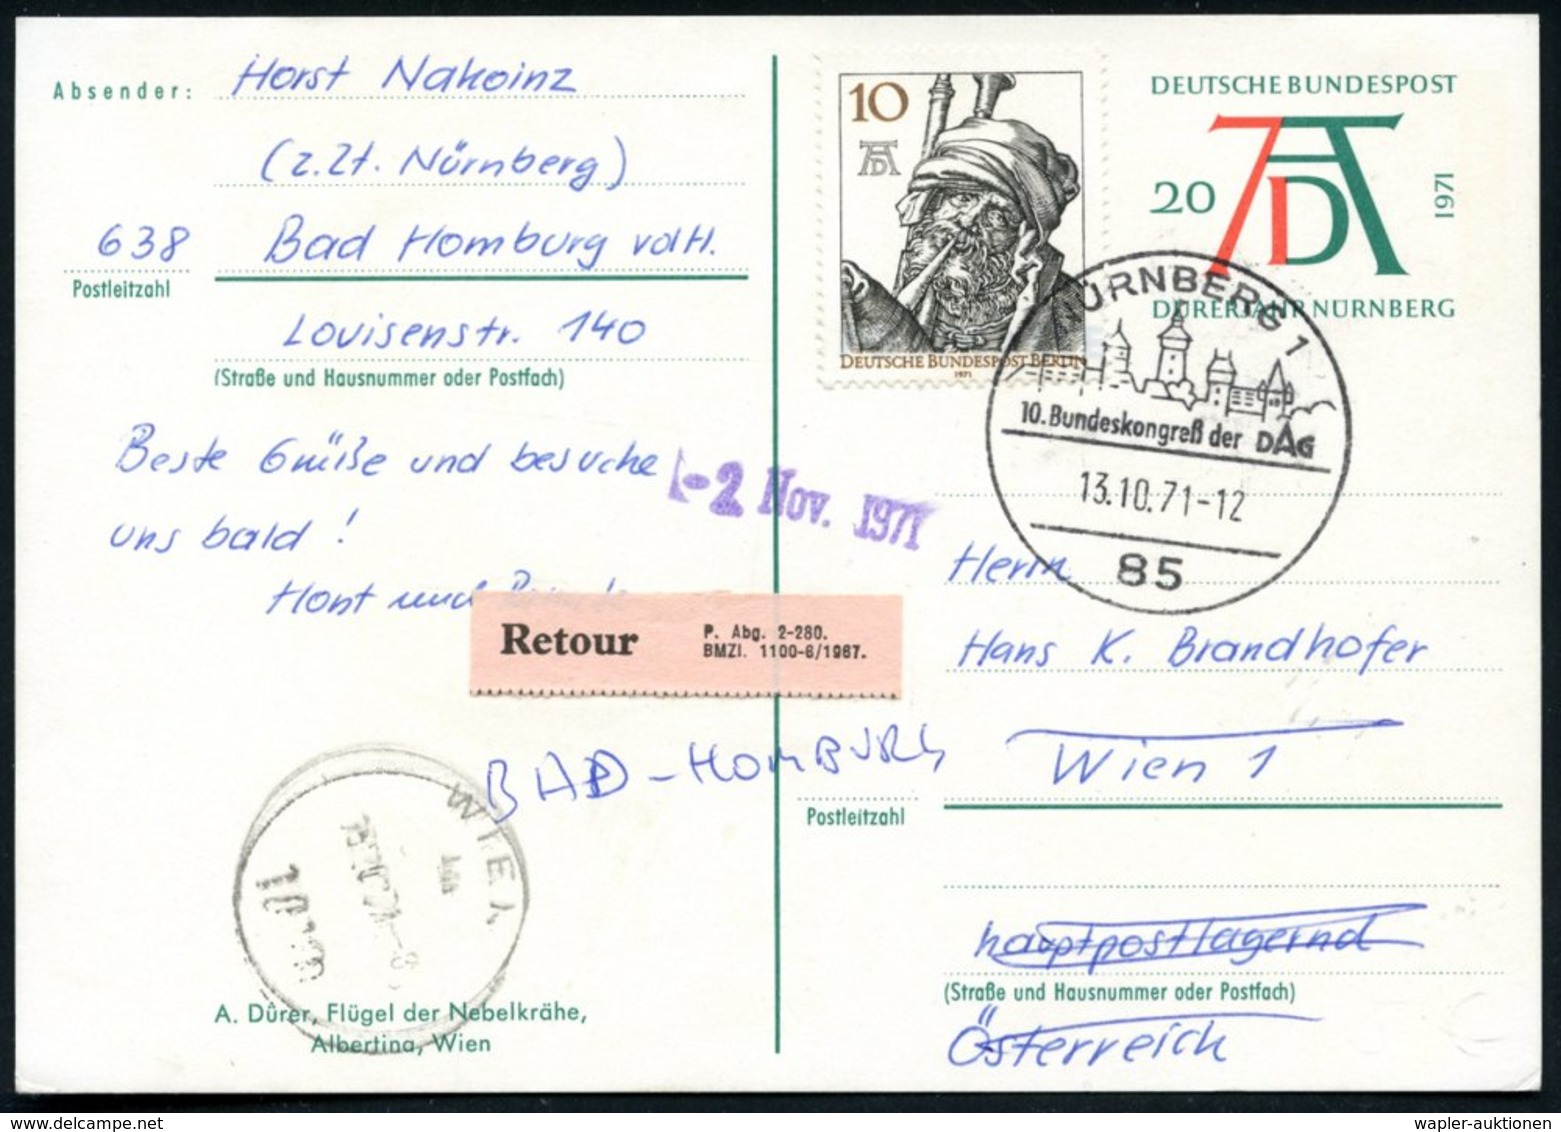 Absender: Horst Nakoinz
(z.Zt. Nürnberg)
638 Bad Homburg vdH.
Postleitzahl
Louisenstr. 140
(Straße und Hausnummer oder Postfach)
Beste Grüße und besuche
uns bald!
Horst und
-2 Nov. 1971
Retour
P. Abg. 2-280.
BMZl. 1100-6/1967.
BAD-HOMBURG
WIEN
A. Dürer, Flügel der Nebelkrähe,
Albertina, Wien
10
AD
DEUTSCHE BUNDESPOST BERLIN
1971
DEUTSCHE BUNDESPOST
20 AD 1971
DÜRERJAHR NÜRNBERG
NÜRNBERG 1
10. Bundeskongreß der DAG
13.10.71-12
85
Herrn
Hans K. Brandhofer
Wien 1
Postleitzahl
hauptpostlagernd
(Straße und Hausnummer oder Postfach)
Österreich
wapler-auktionen